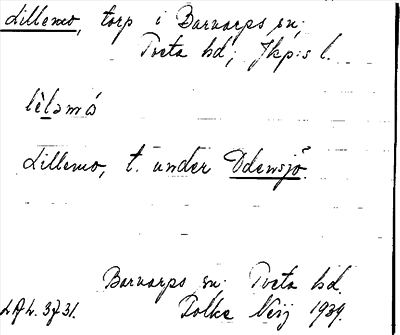 Lillemo, torp i Barnarps sn;
Tveta hd; Jkp:s l.
lèləmó
Lillemo, t. under Odensjö.
Barnarps sn. Tveta hd.
Folke Neij 1939